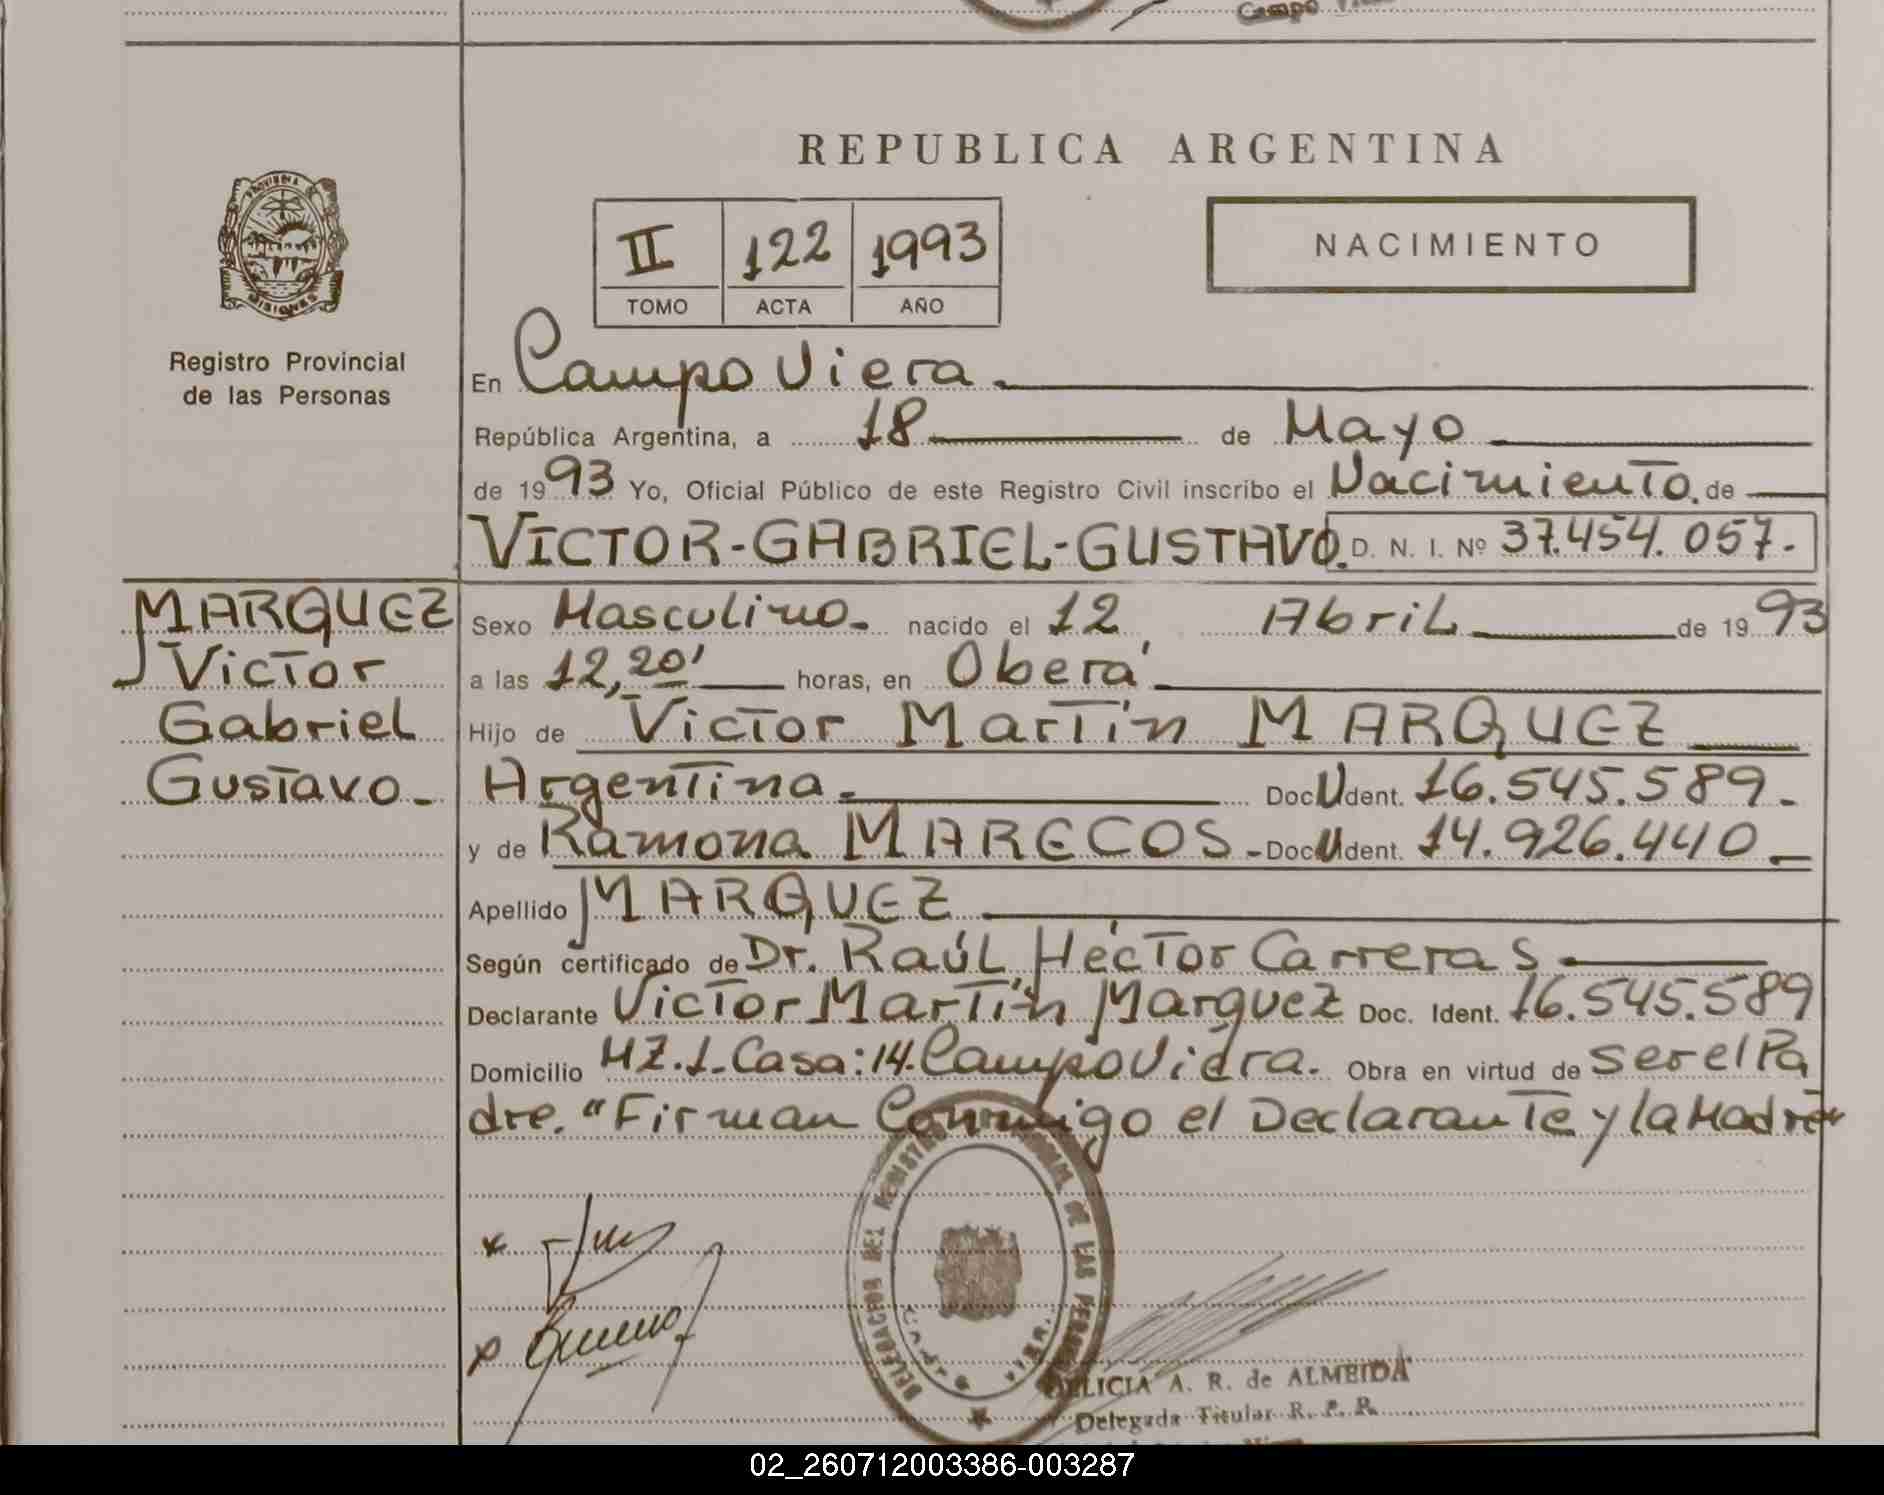 Campo
REPUBLICA ARGENTINA
PROVINCIA D
MISIONES
II 122 1993
TOMO ACTA AÑO
NACIMIENTO
Registro Provincial
de las Personas
En Campo Viera.
República Argentina, a 18 de Mayo
de 1993 Yo, Oficial Público de este Registro Civil inscribo el Nacimiento. de
VICTOR-GABRIEL-GUSTAVO. D. N. I. Nº 37.454.057.-
MARQUEZ
Victor
Gabriel
Gustavo.-
Sexo Masculino.- nacido el 12 Abril de 1993
a las 12,20' horas, en Oberá
Hijo de Victor Martín MARQUEZ
Argentina.- Doc U dent. 16.545.589.-
y de Ramona MARECOS.- Doc U dent. 14.926.440.-
Apellido MARQUEZ
Según certificado de Dr. Raúl Héctor Carreras.
Declarante Victor Martín Marquez Doc. Ident. 16.545.589
Domicilio MZ.1-Casa:14.Campo Viera. Obra en virtud de ser el Pa
dre. "Firman Conmigo el Declarante y la Madre"
DELEGACION DEL REGISTRO DE LAS PERSONAS
DELICIA A. R. de ALMEIDA
Delegada Titular R. P. P.
02_260712003386-003287